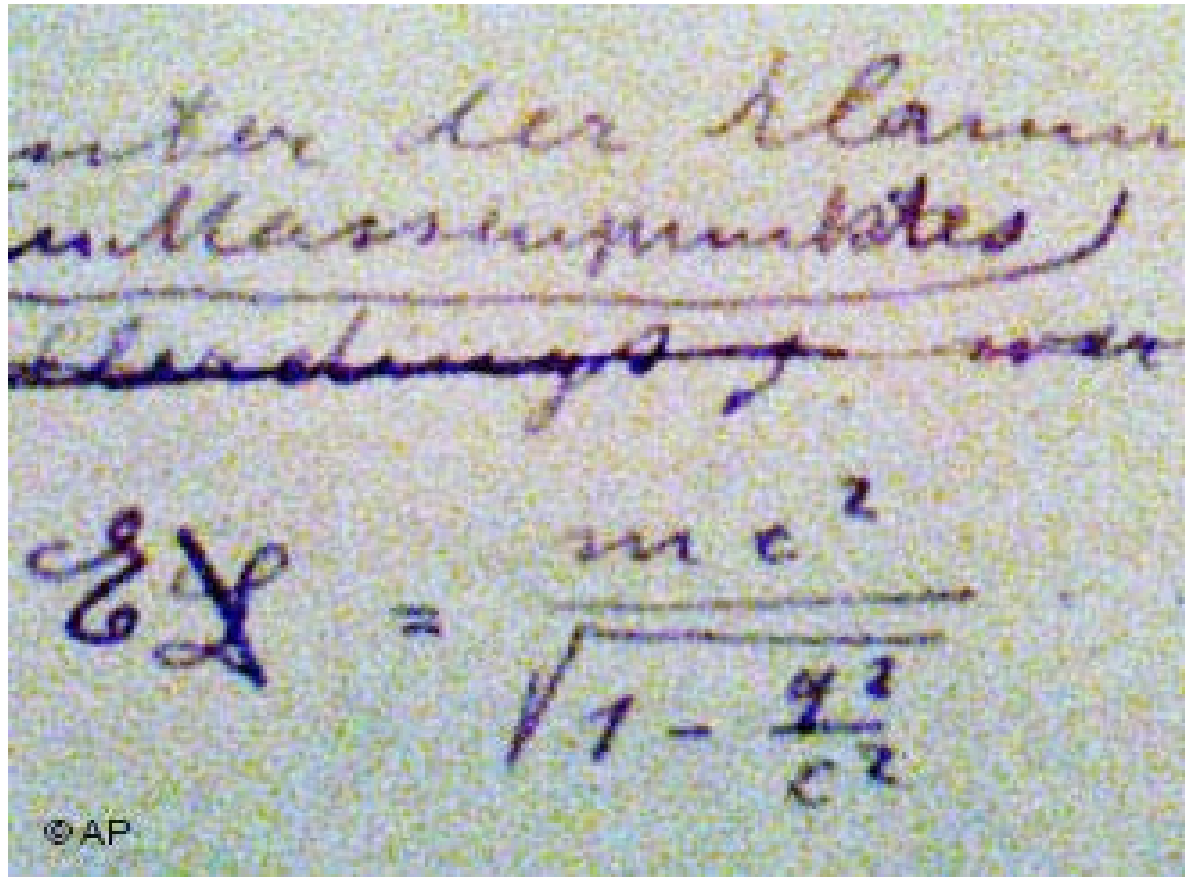 unter der Klamm
Massenpunktes)
war
E = mc² / √(1 - q²/c²)
© AP